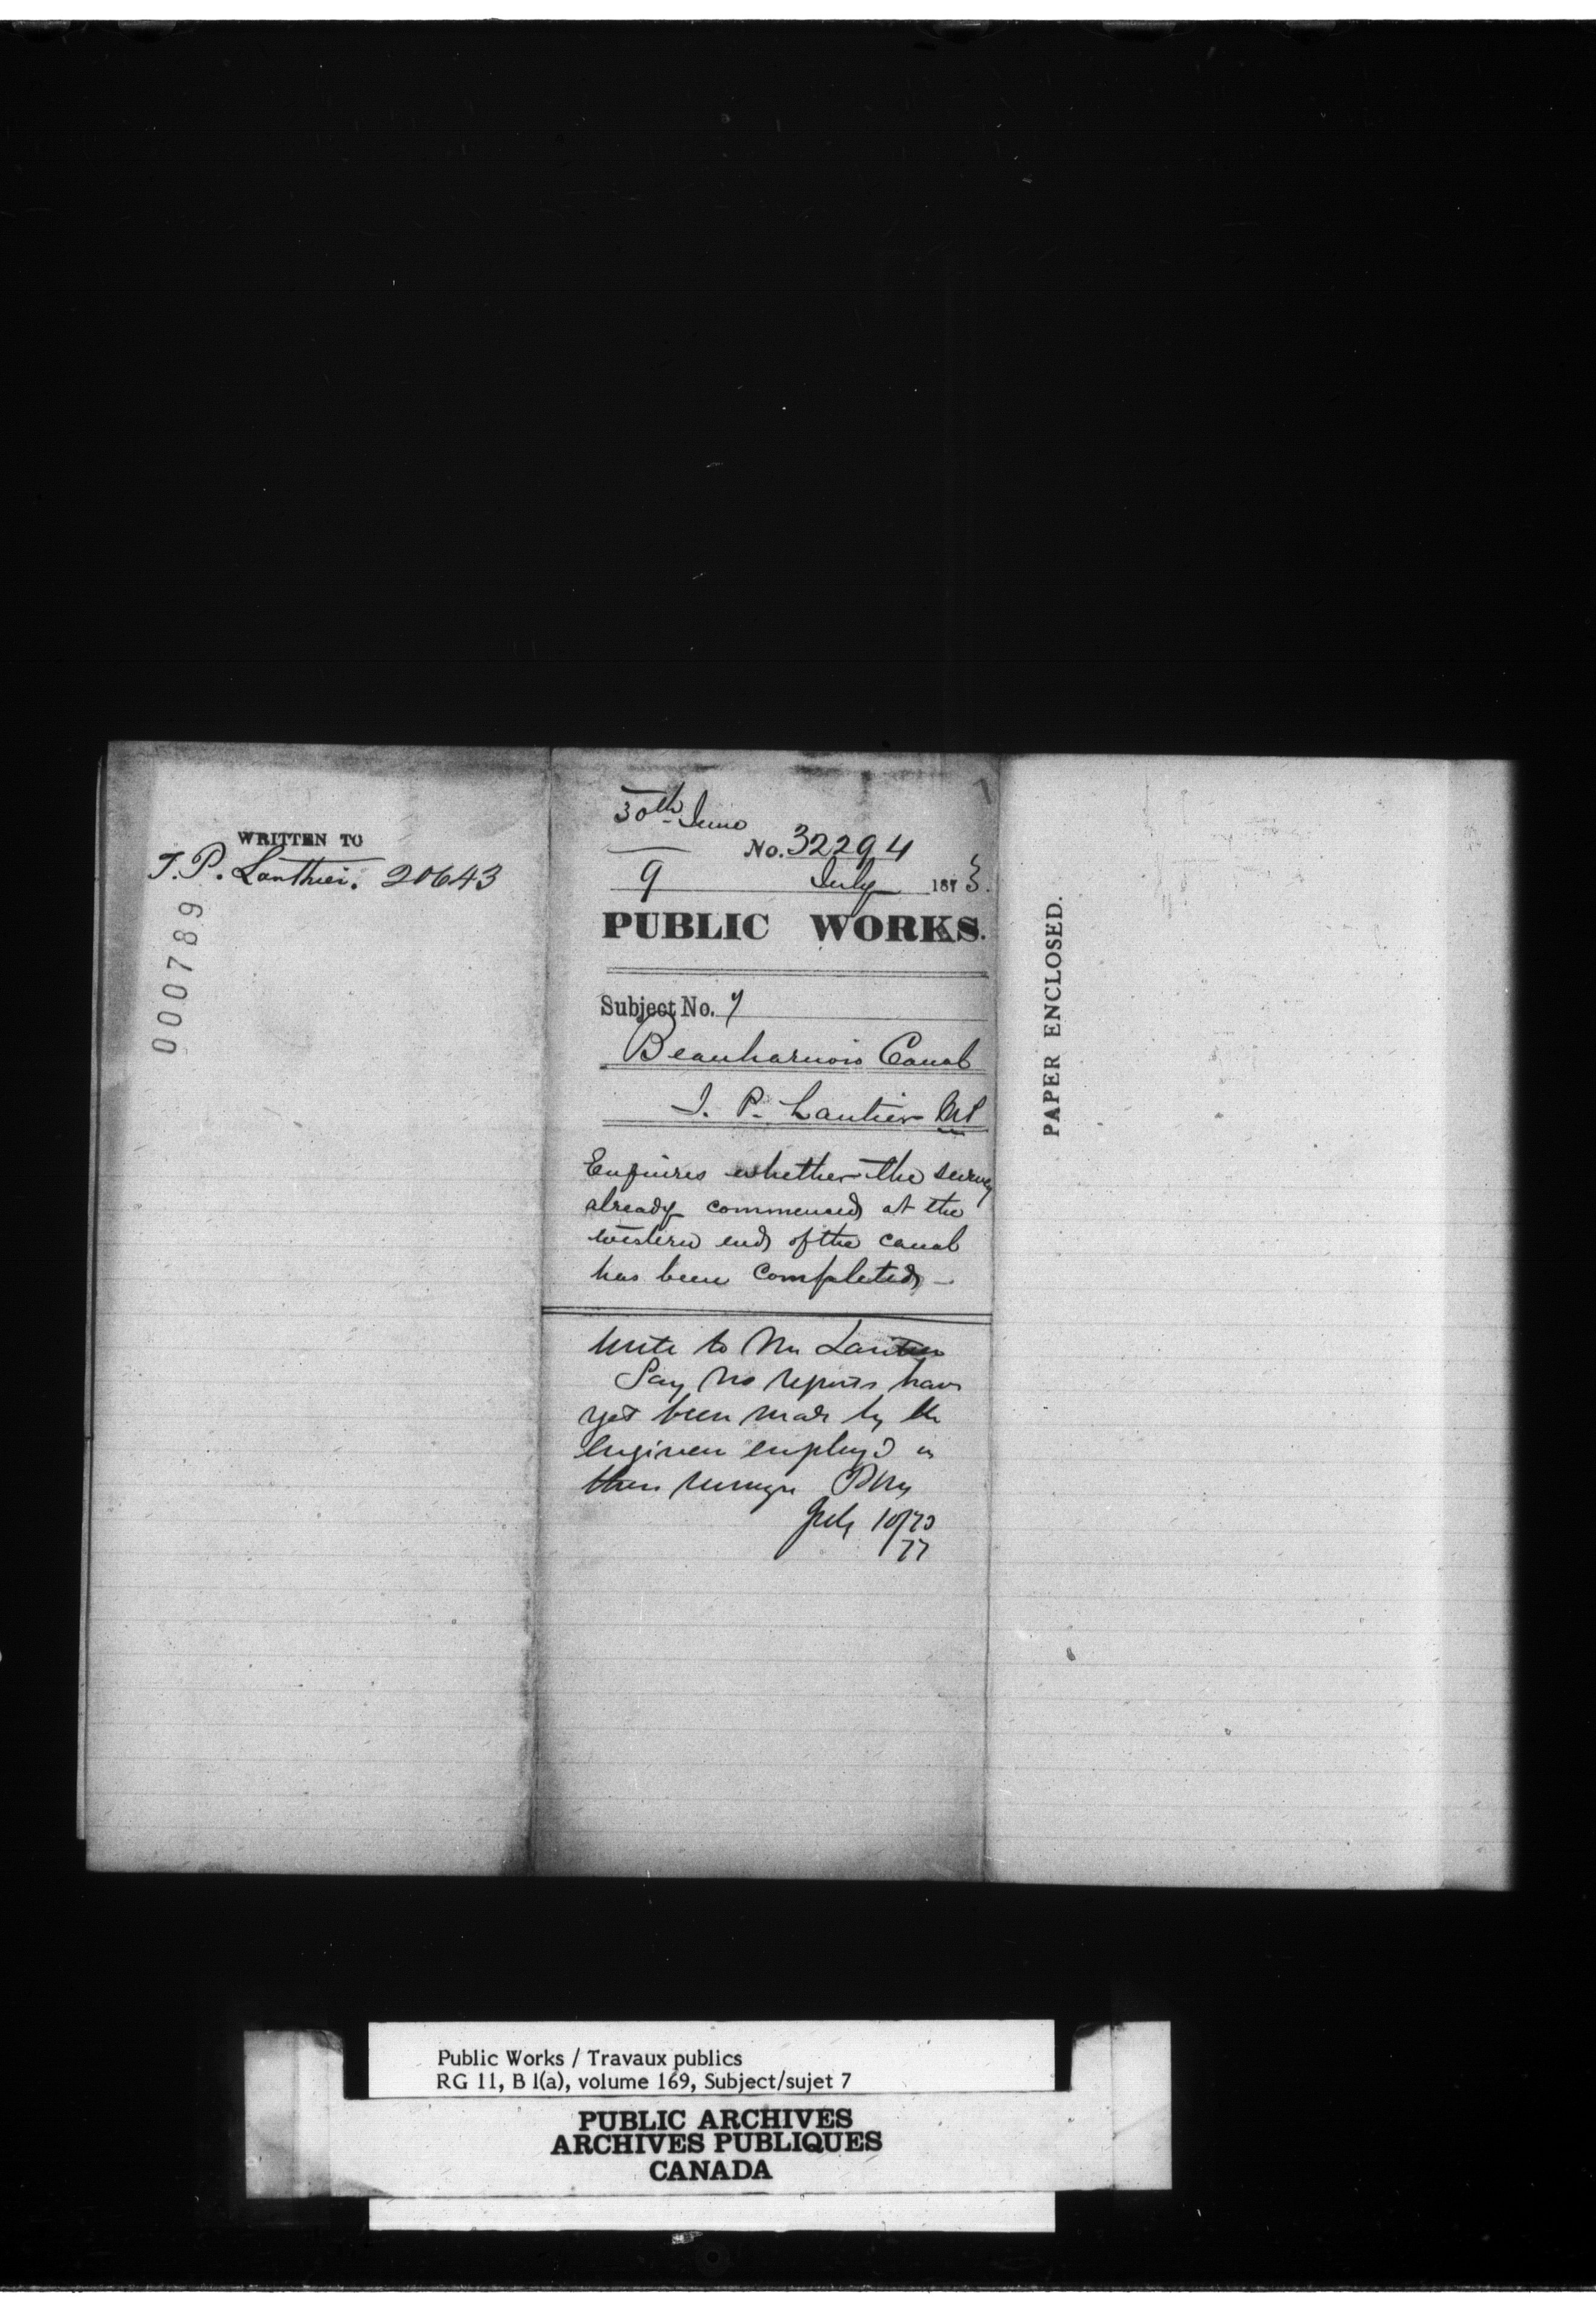 WRITTEN TO
J. P. Lanthier. 20643
000789
30th June
No. 32294
9 July 1873.
PUBLIC WORKS.
Subject No. 7
Beauharnois Canal
J. P. Lantier MP
Enquires whether the survey
already commenced at the
western end of the canal
has been completed -
Write to Mr Lantier
Say no reports have
yet been made by the
Engineer employd in
these surveys
July 10/73
77
PAPER ENCLOSED.
Public Works / Travaux publics
RG 11, B 1(a), volume 169, Subject/sujet 7
PUBLIC ARCHIVES
ARCHIVES PUBLIQUES
CANADA